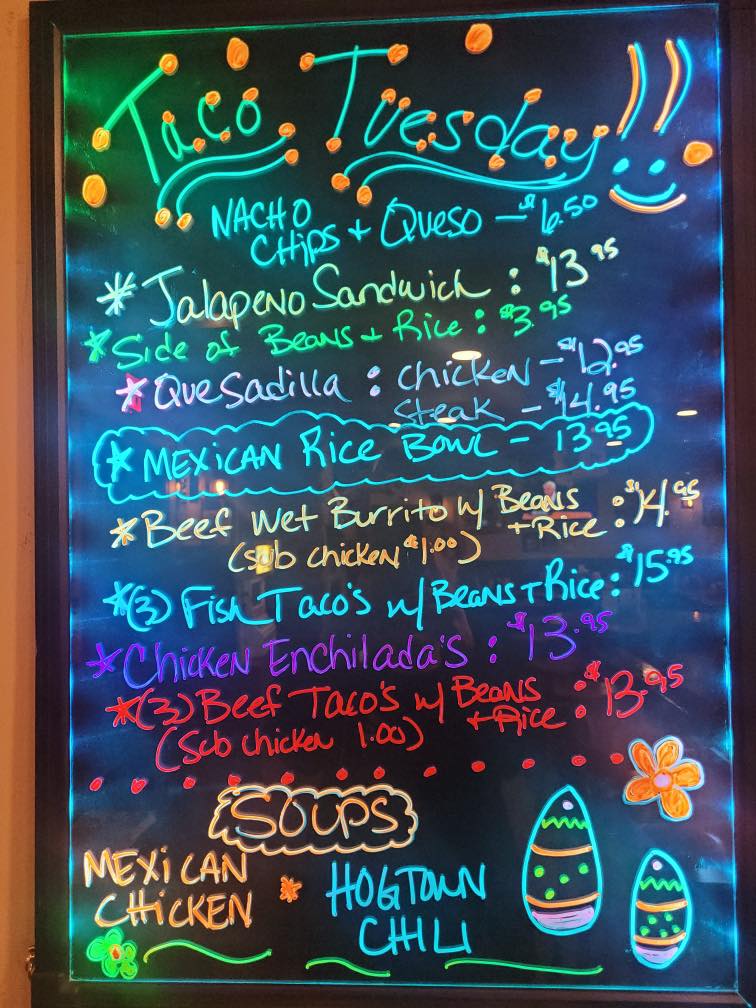 Taco Tuesday!!
NACHO
CHiPs + QUESO - $6.50
* Jalapeno Sandwich : $13.95
* Side of Beans + Rice : $3.95
* Quesadilla : chicken - $12.95
steak - $14.95
* MEXiCAN Rice Bowl - 13.95
* Beef Wet Burrito w/ Beans
+ Rice : $14.95
(sub chicken $1.00)
* (3) Fish Taco's w/ Beans + Rice : $15.95
* Chicken Enchilada's : $13.95
* (3) Beef Taco's w/ Beans
+ Rice : $13.95
(Sub chicken 1.00)
SOUPS
MEXiCAN
CHiCKEN * HOGTOWN
CHILI